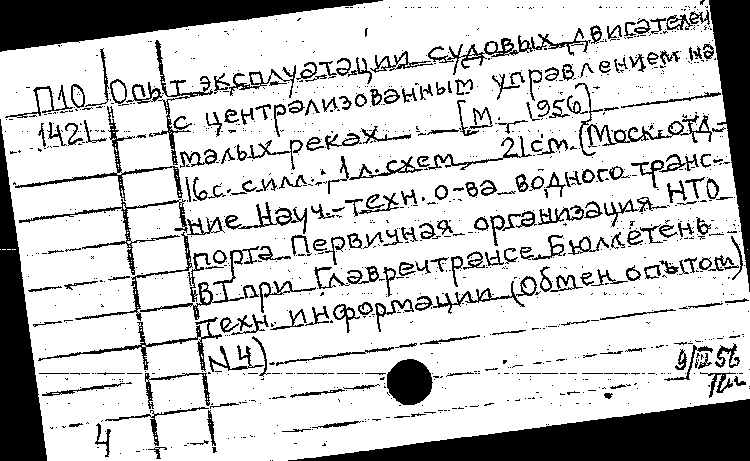 П10 Опыт эксплуатации судовых двигателей
1421 с централизованным управлением на
малых реках. [М., 1956]
16с. с илл.; 1 л. схем. 21 см. (Моск. отд-
ние Науч.-техн. о-ва водного транс-
порта Первичная организация НТО
ВТ при Главречтрансе. Бюллетень
техн. информации (Обмен опытом)
N 4)
9/III 56
4